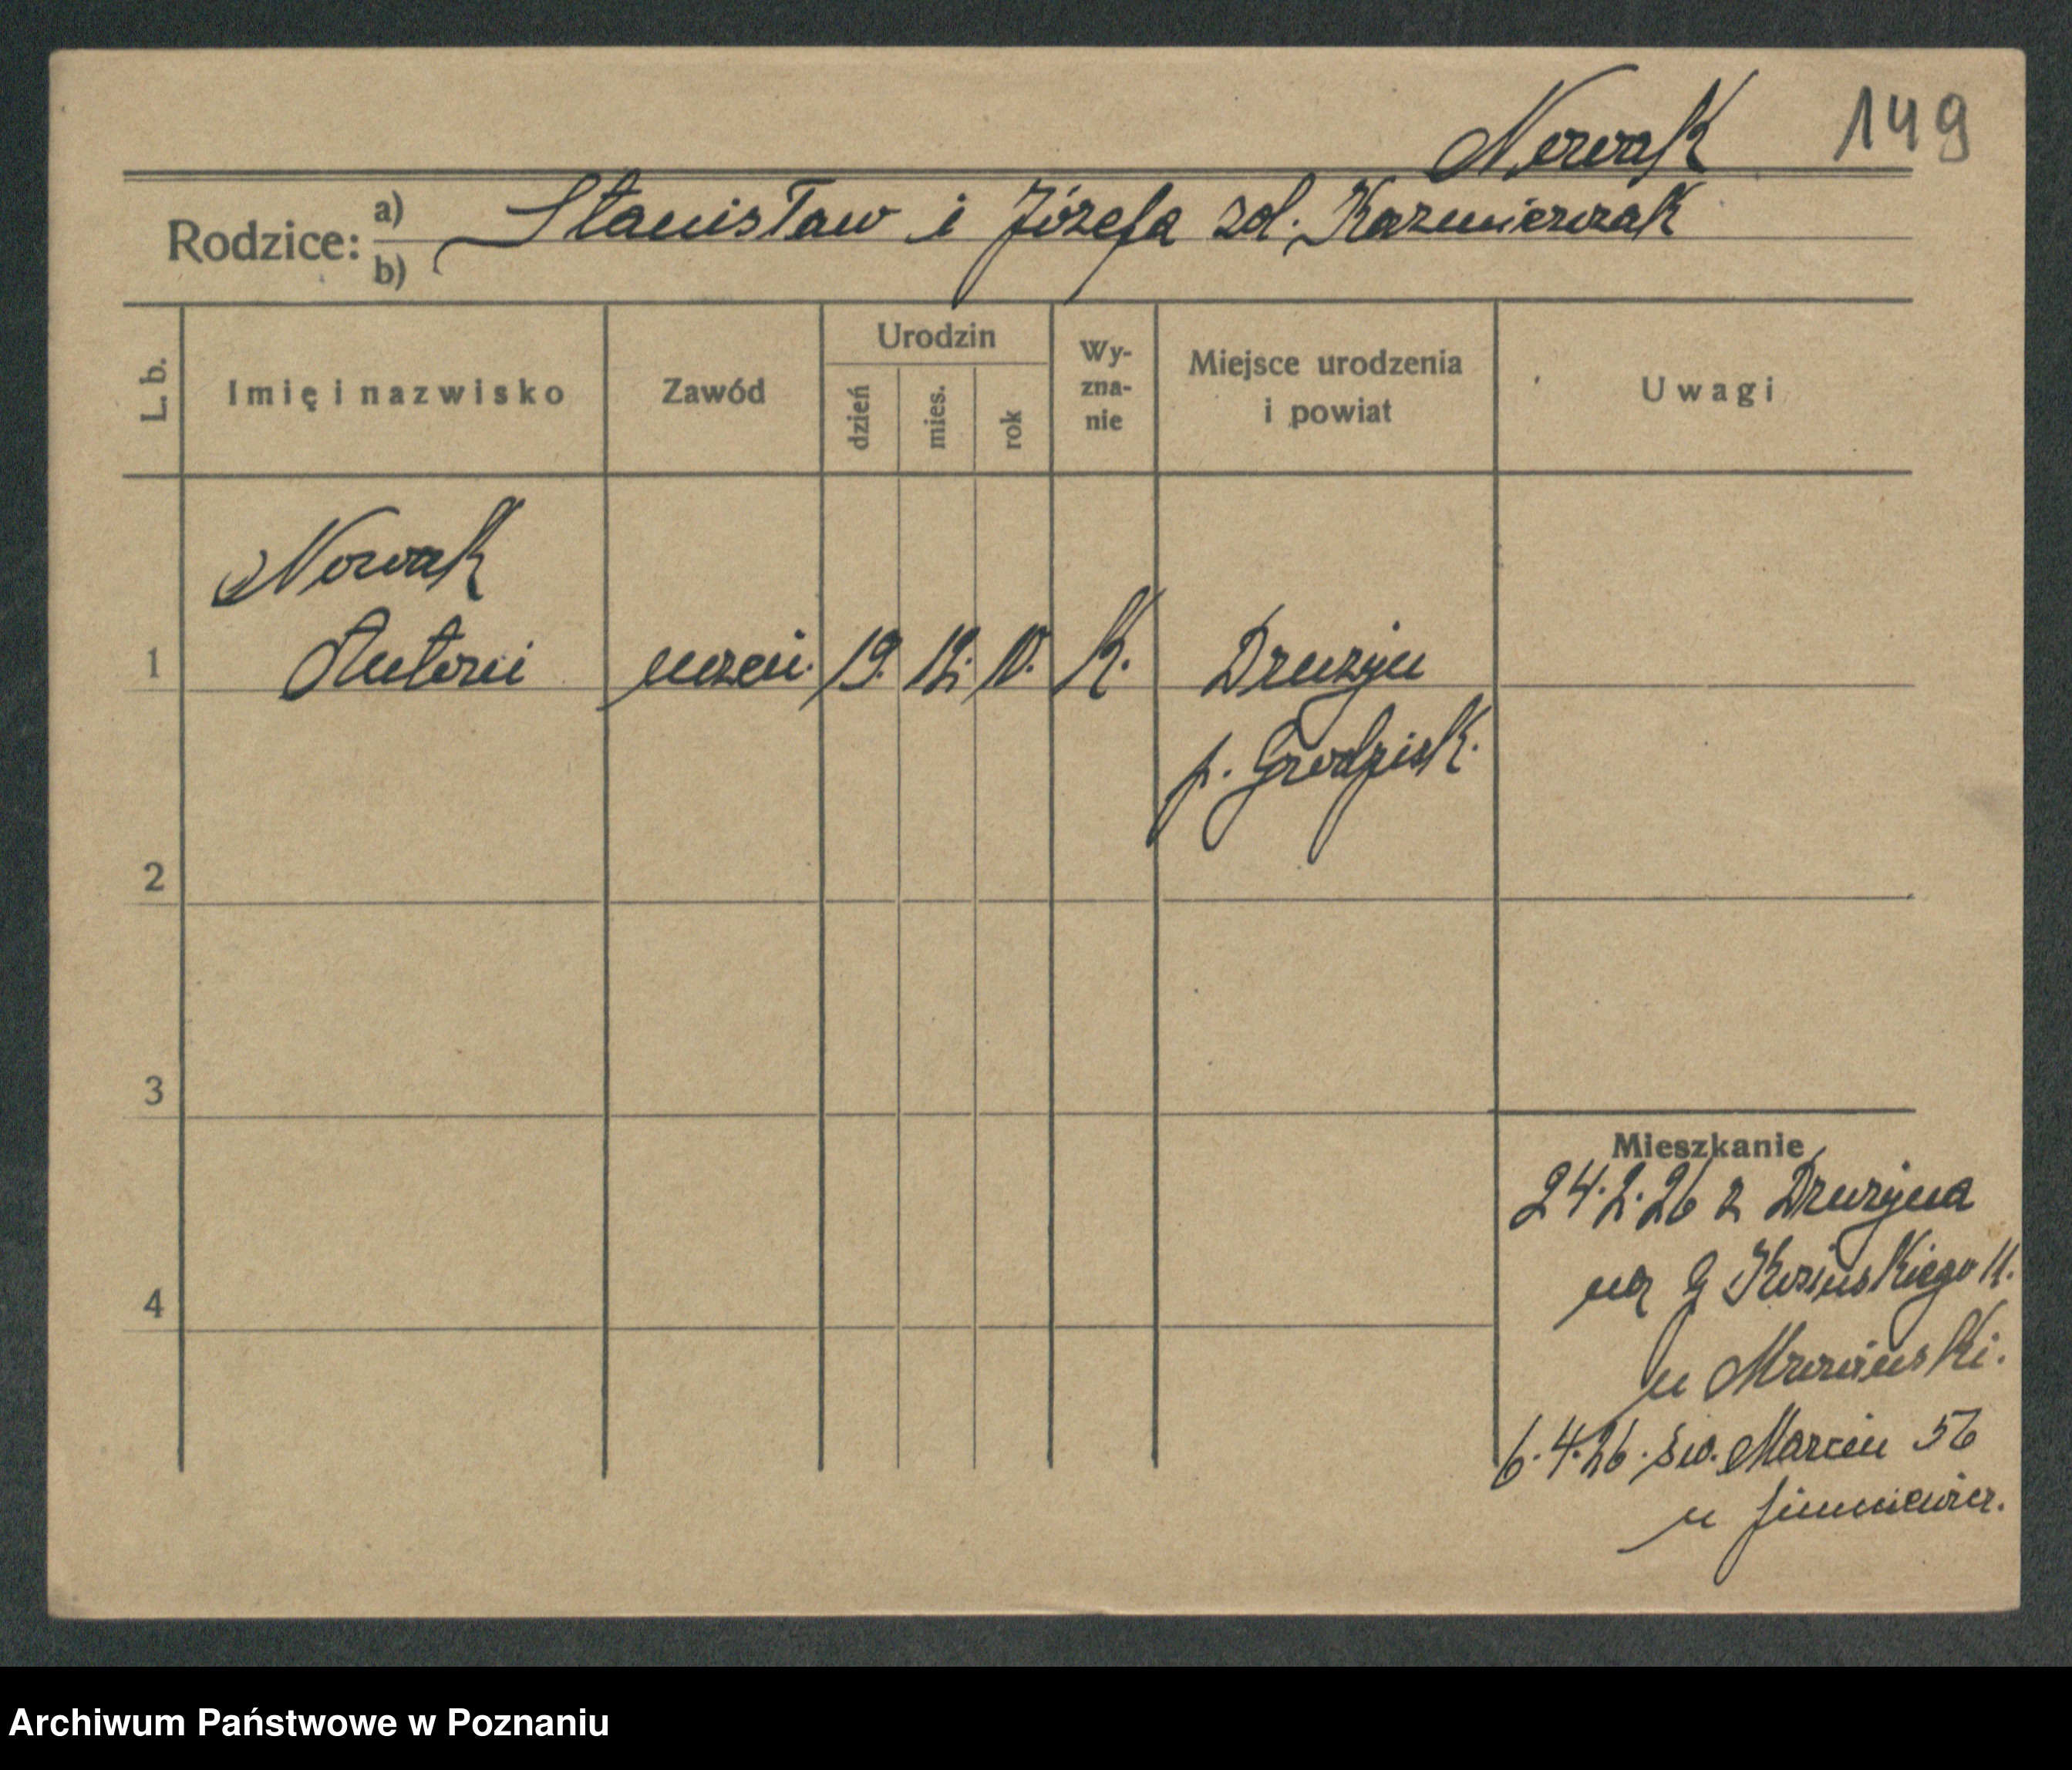 Nowak 149
Rodzice: a) Stanisław i Józefa zd. Kazmierczak
b)
L. b. Imię i nazwisko Zawód Urodzin dzień mies. rok Wyznanie Miejsce urodzenia i powiat Uwagi
Nowak
1 Antoni uczeń. 19. 12. 10. K. Drużyn
p. Grodzisk.
2
3
4
Mieszkanie
24.2.26 z Drużyna
na G
u
6.4.26. św. Marcin 56
u
Archiwum Państwowe w Poznaniu